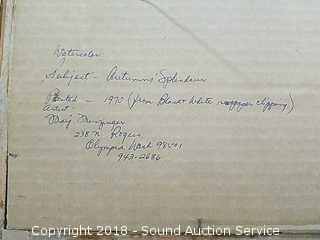 Watercolor
Subject - Autumns Splendour
Painted - 1970 (from Black & White clipping)
Artist -
Marj
238 N Rogers
Olympia Wash 98501
943-2686
Copyright 2018 - Sound Auction Service